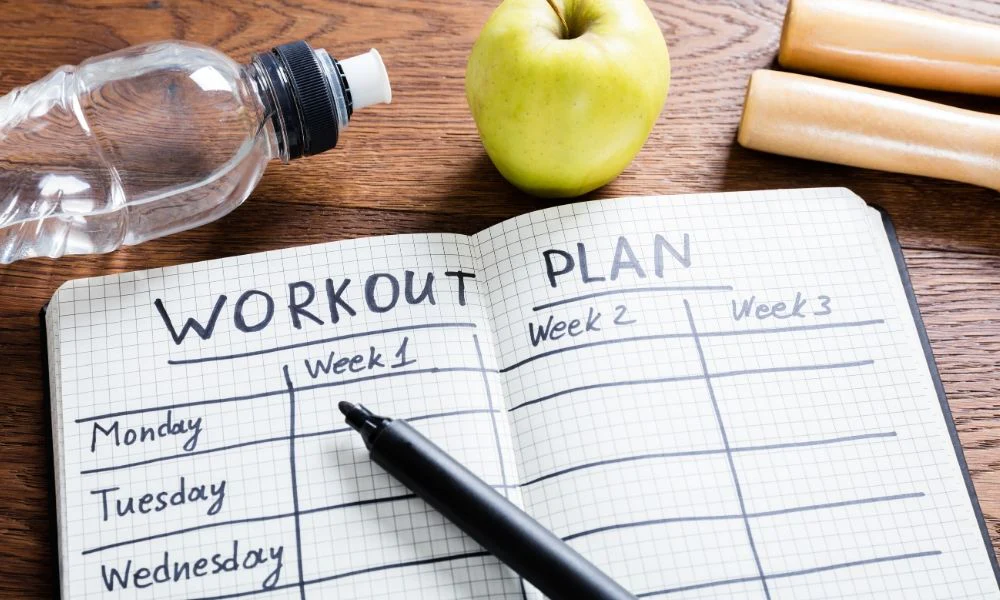 WORKOUT PLAN
Week 1 Week 2 Week 3
Monday
Tuesday
Wednesday